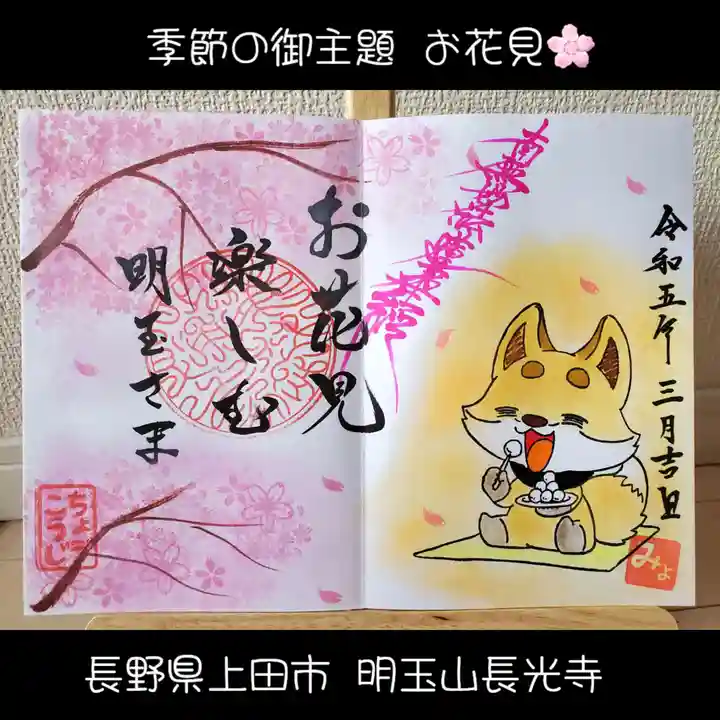 季節の御主題 お花見🌸
令和五年 三月吉日
南無妙法蓮華経
お花見
楽しむ
明玉さま
ちょう
こうじ
みょ
長野県上田市 明玉山長光寺